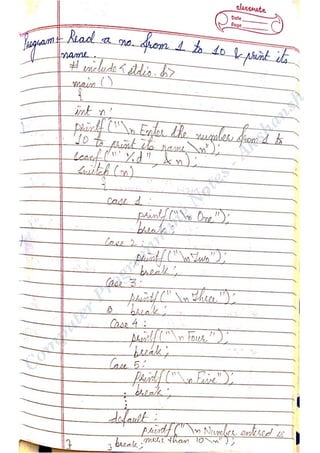 classmate
Date
Page
Program:- Read a no. from 1 to 10 & print its
name.
# include < stdio.h>
main ()
{
int n;
printf ("\n Enter the number from 1 to
10 to print its name \n");
scanf (" %d", & n);
switch (n)
{
case 1 :
printf ("\n One");
break;
case 2 :
printf ("\n Two");
break;
Case 3:
printf ("\n Three");
break;
Case 4 :
printf ("\n Four");
break;
Case 5:
Printf ("\n Five");
break;
default :
printf ("\n Number entered is
more than 10 \n");
break;
}
}
Computer Programming Notes - Akshansh